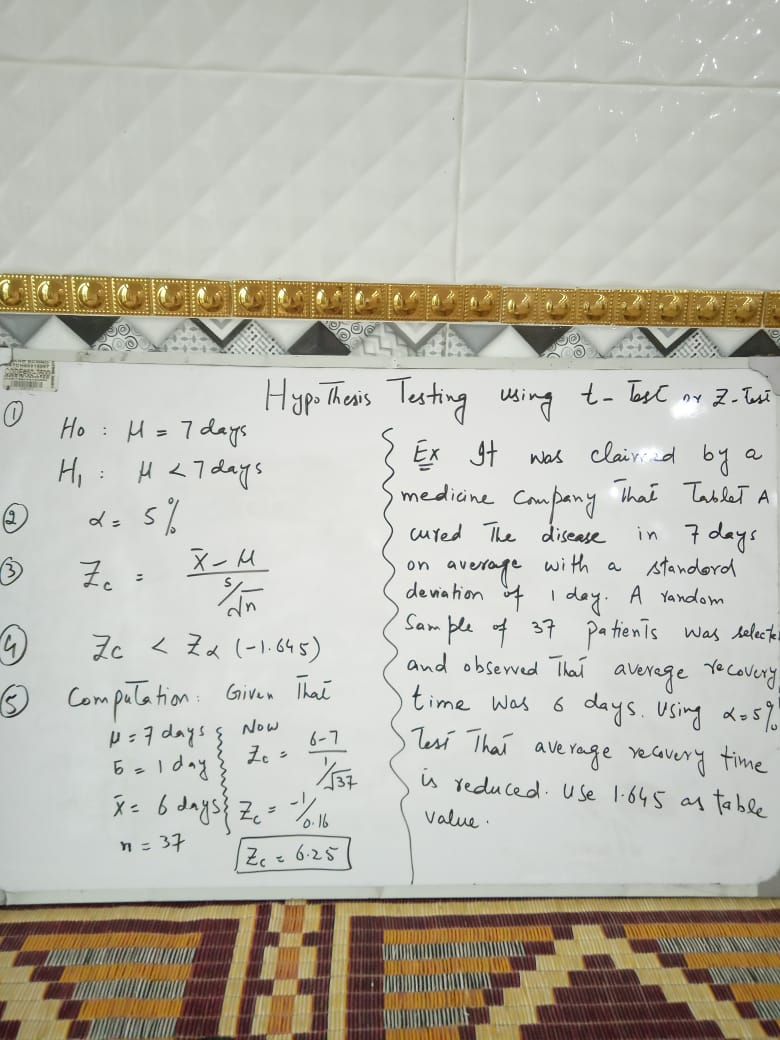 Hypothesis Testing using t-Test or Z-Test
① H₀ : μ = 7 days
H₁ : μ < 7 days
② α = 5%
③ Zc = (x̄ - μ) / (s/√n)
④ Zc < Zα (-1.645)
⑤ Computation: Given That
μ = 7 days
σ = 1 day
x̄ = 6 days
n = 37
Now
Zc = (6-7) / (1/√37)
Zc = -1/0.16
Zc = 6.25
Ex It was claimed by a
medicine company That Tablet A
cured The disease in 7 days
on average with a standord
deviation of 1 day. A random
Sample of 37 patients was selecte
and observed That average recovery
time was 6 days. Using α=5%
Test That average recovery time
is reduced. Use 1.645 as table
value.